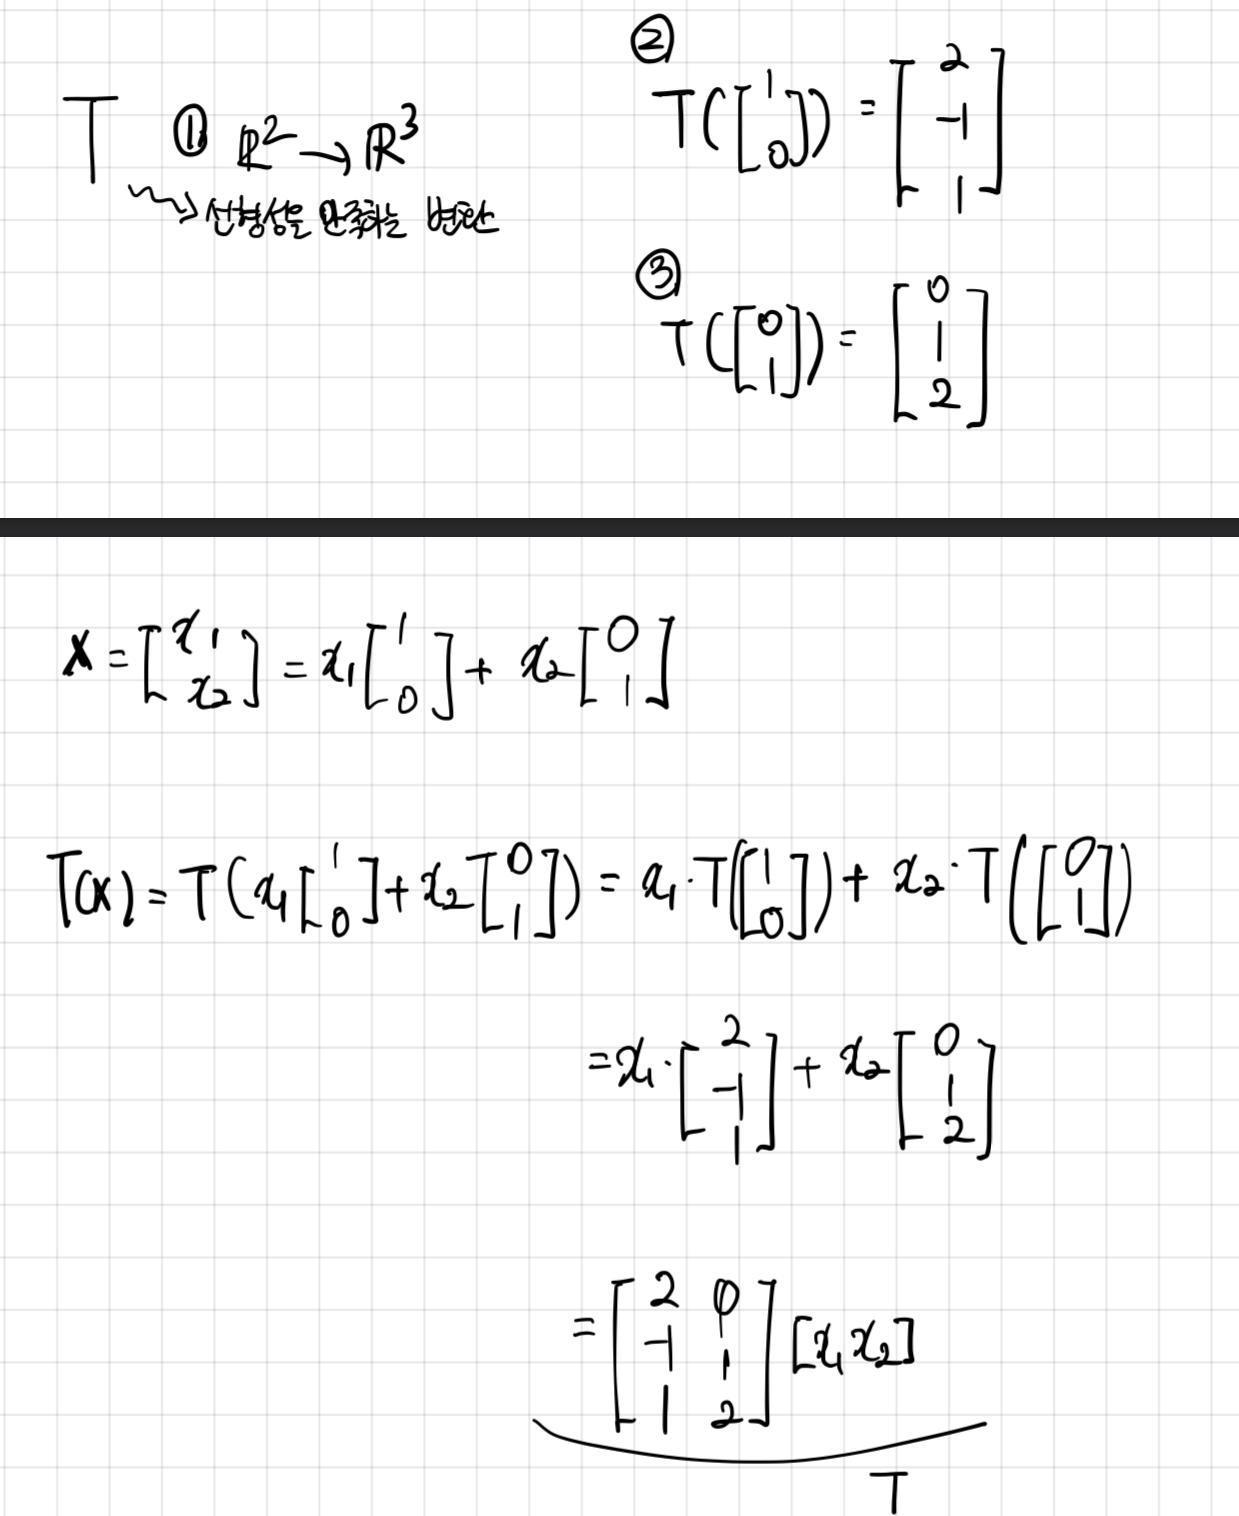 T ① ℝ² → ℝ³
→ 선형성을 만족하는 변환
②
T([1 0]) = [2 -1 1]
③
T([0 1]) = [0 1 2]
x = [x₁ x₂] = x₁[1 0] + x₂[0 1]
T(x) = T(x₁[1 0] + x₂[0 1]) = x₁·T([1 0]) + x₂·T([0 1])
= x₁·[2 -1 1] + x₂[0 1 2]
= [2 0 -1 1 1 2] [x₁ x₂]
T